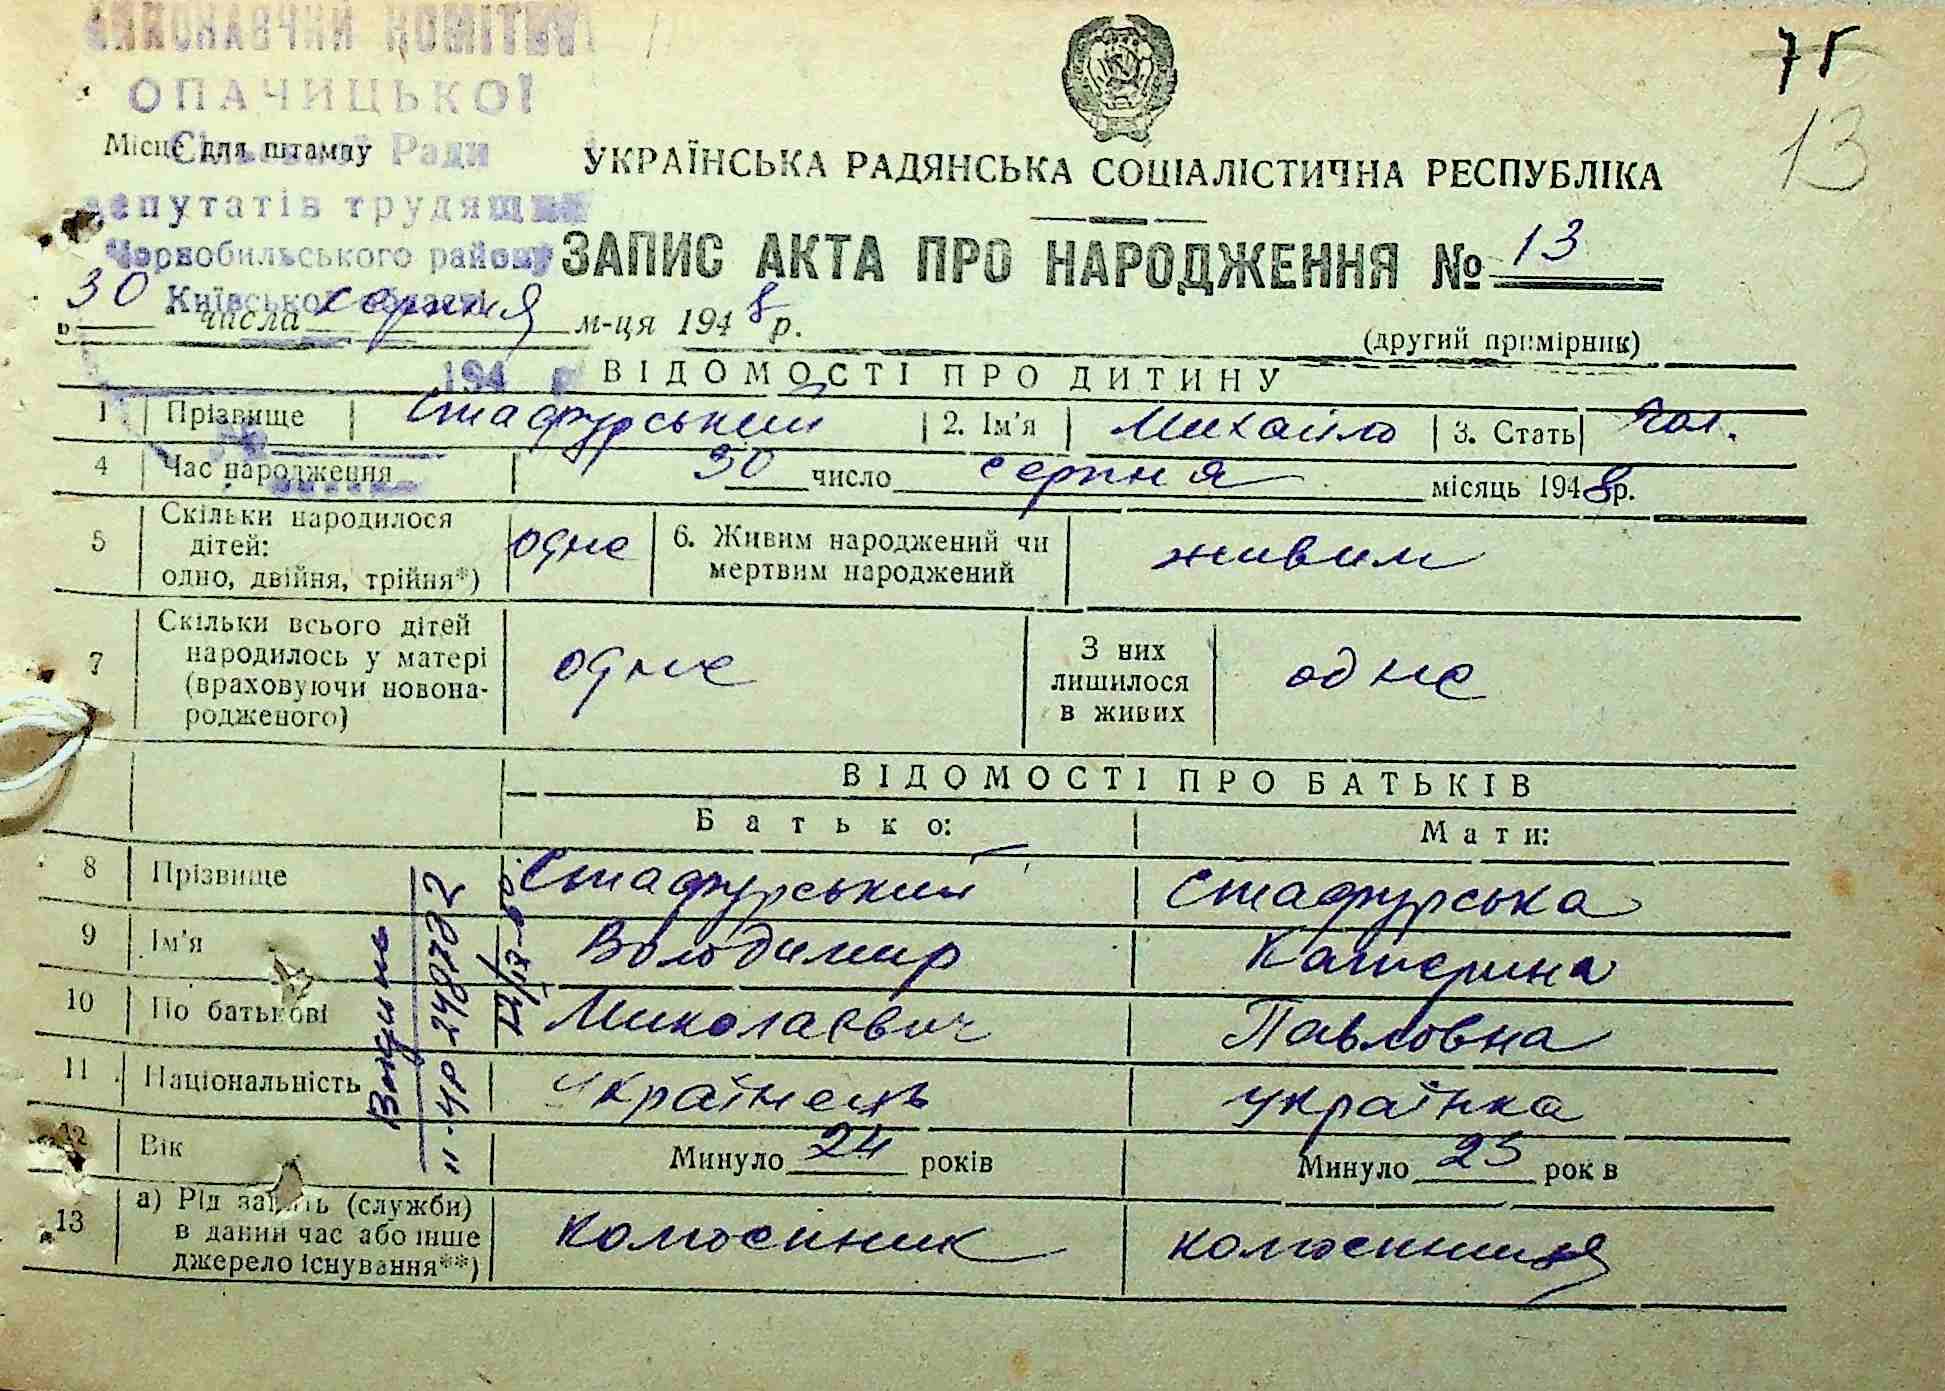 ВИКОНАВЧИЙ КОМІТЕТ
ОПАЧИЦЬКОЇ
Сільської Ради
депутатів трудящих
Чорнобильського району
Київської області
194 р.
Місце для штампу
7Г
13
УКРАЇНСЬКА РАДЯНСЬКА СОЦІАЛІСТИЧНА РЕСПУБЛІКА
ЗАПИС АКТА ПРО НАРОДЖЕННЯ № 13
"30" числа серпня м-ця 1948 р.
(другий примірник)
ВІДОМОСТІ ПРО ДИТИНУ
1 Прізвище Стафурський 2. Ім'я Михайло 3. Стать чол.
4 Час народження 30 число серпня місяць 1948 р.
5 Скільки народилося дітей: одно, двійня, трійня*) одне 6. Живим народжений чи мертвим народжений живим
7 Скільки всього дітей народилось у матері (враховуючи новонародженого) одне З них лишилося в живих одне
ВІДОМОСТІ ПРО БАТЬКІВ
Батько: Мати:
8 Прізвище Стафурський Стафурська
9 Ім'я Володимир Катерина
10 По батькові Миколаєвич Павловна
11 Національність українець українка
12 Вік Минуло 24 років Минуло 23 років
13 а) Рід занять (служби) в даний час або інше джерело існування**) колгоспник колгоспниця